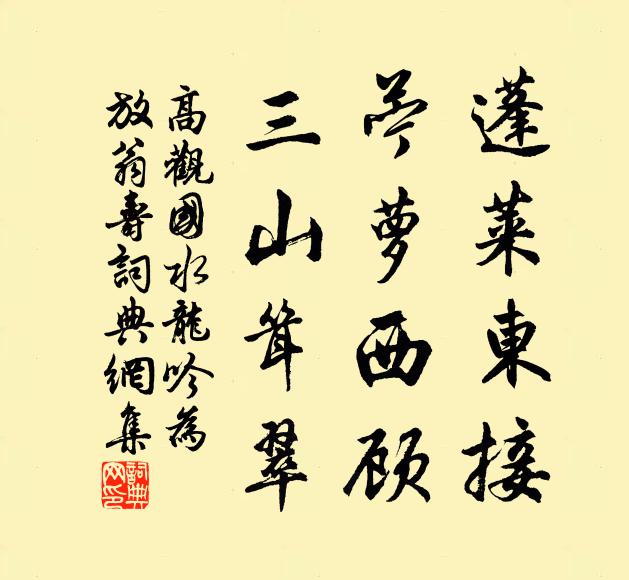 蓬萊東接
苧萝西顾
三山耸翠
高觀國水龍吟為
放翁壽詞典網集
詞典網印